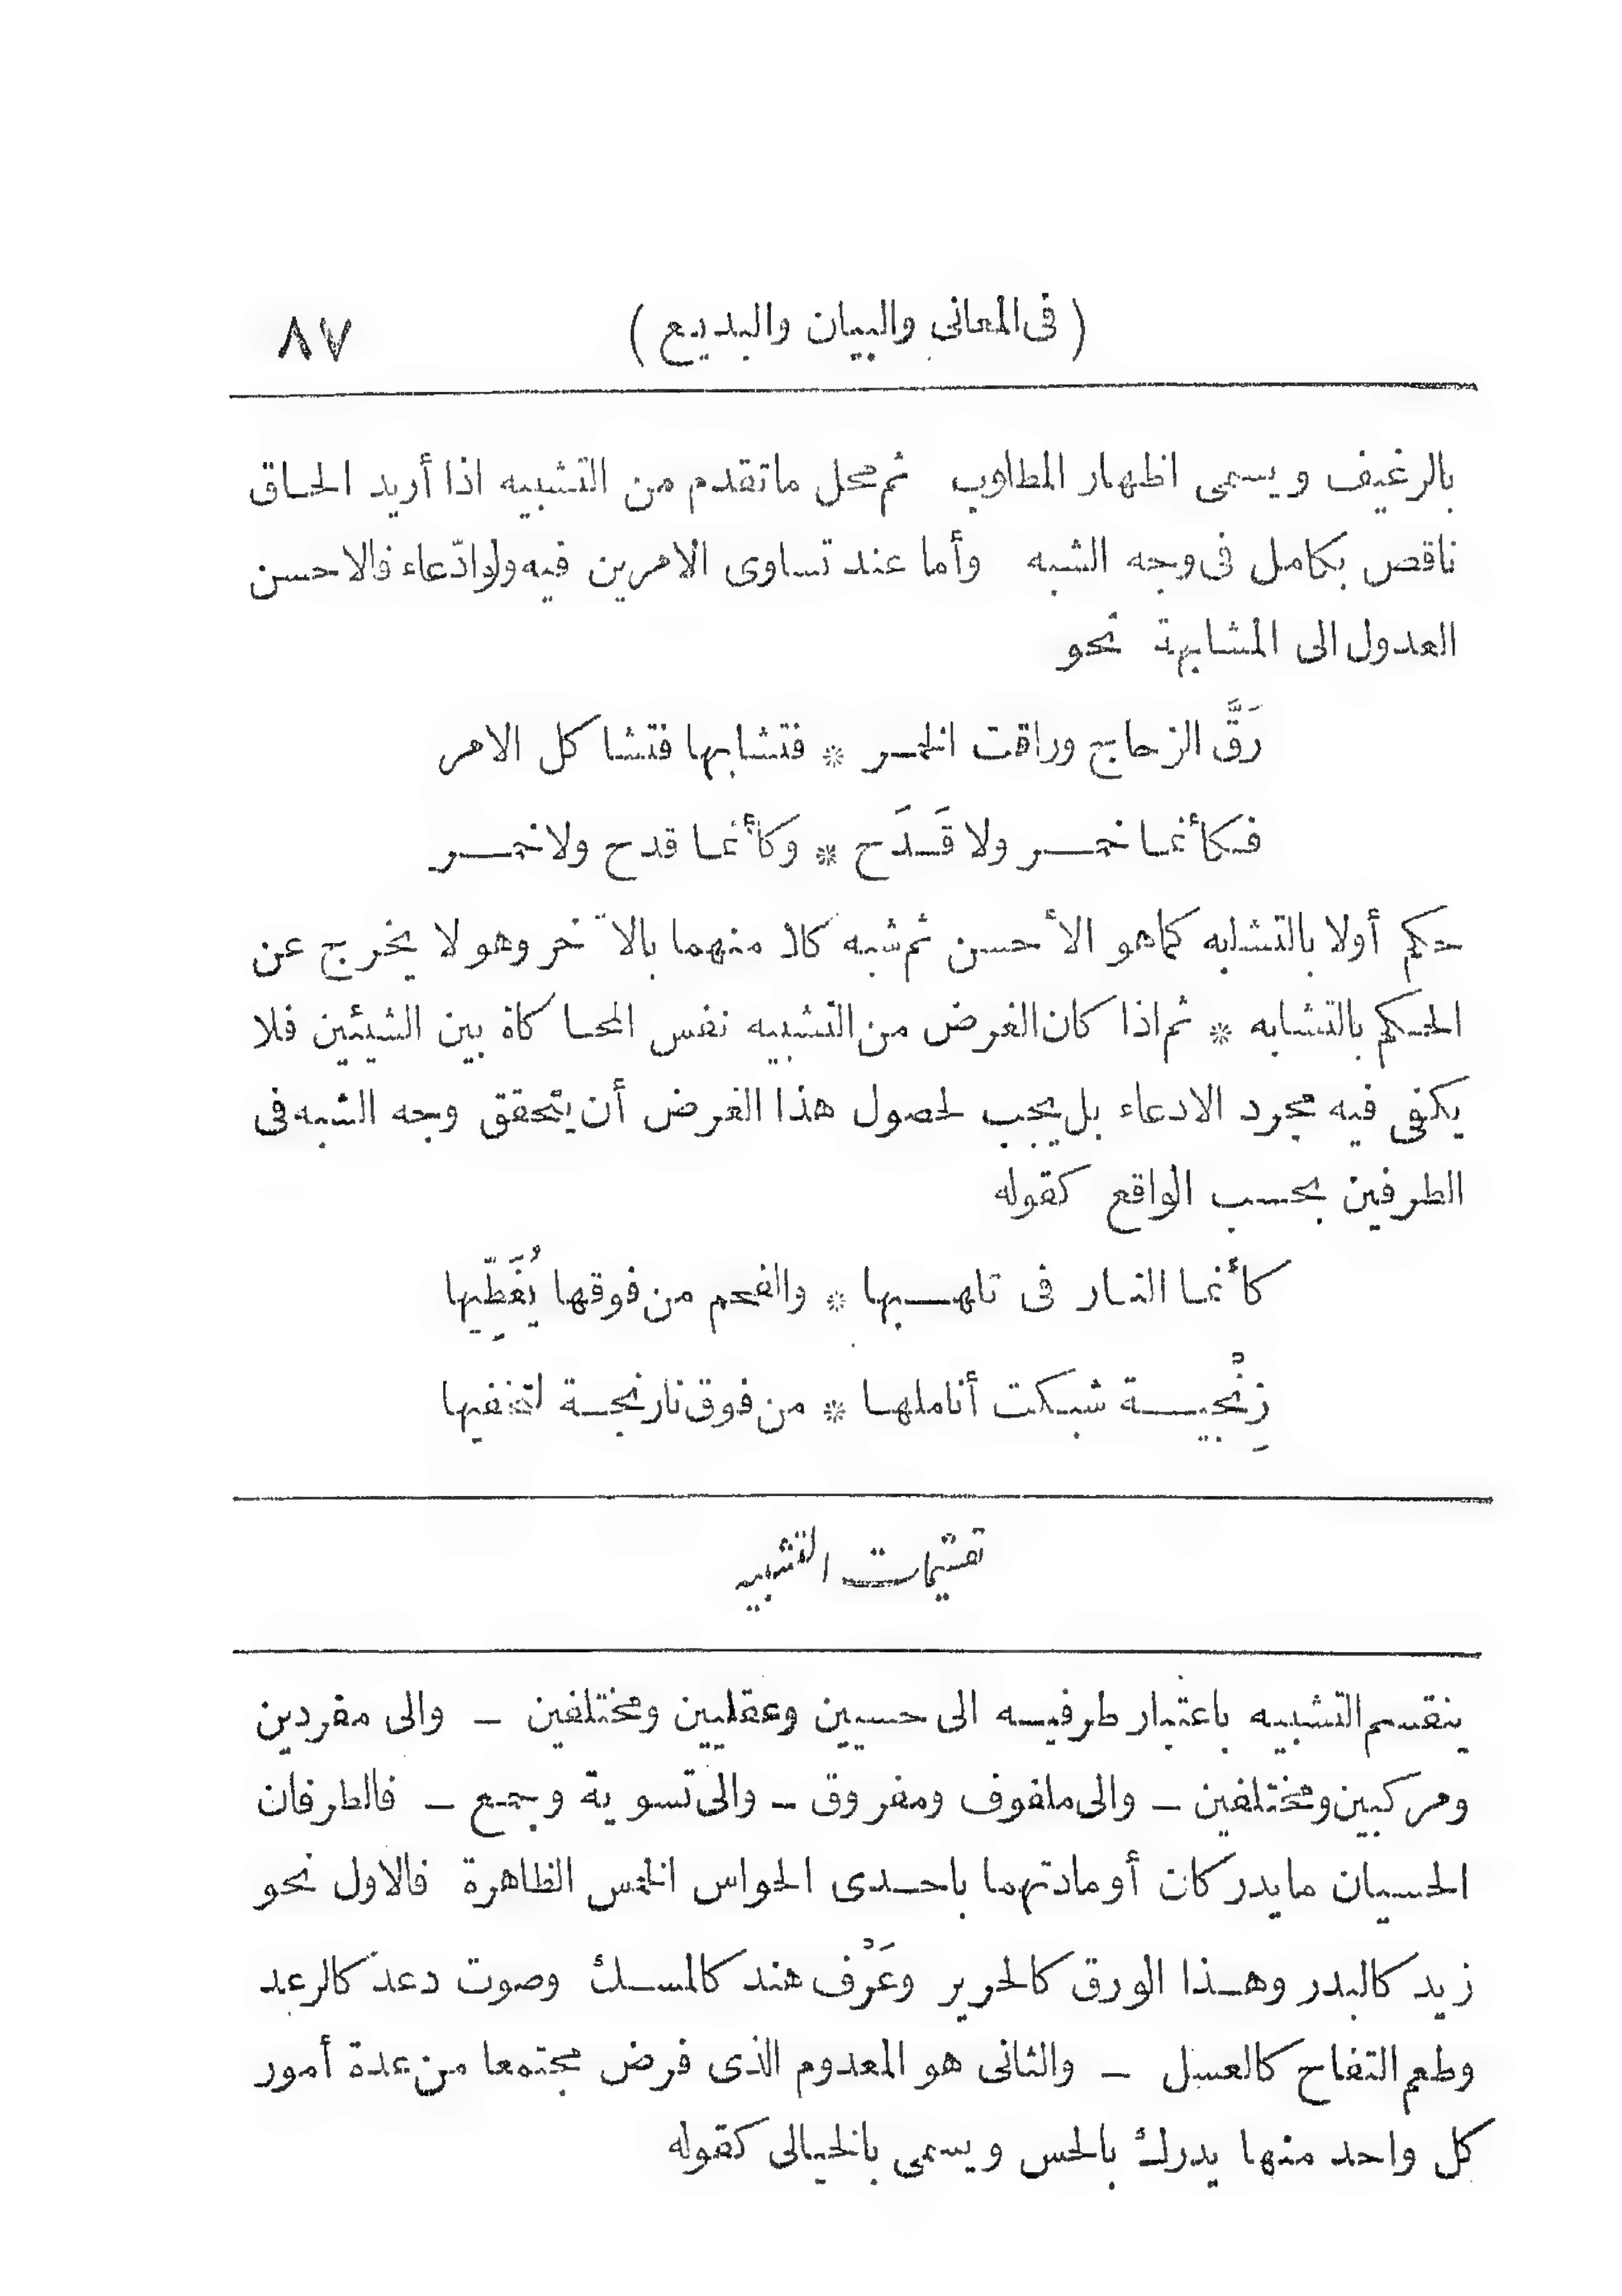 (فى المعانى والبيان والبديع) ٨٧
بالرغيف ويسمى اظهار المطلوب ثم محل ماتقدم من التشبيه اذا أريد الحاق
ناقص بكامل فى وجه الشبه وأما عند تساوى الامرين فيه ولو ادّعاء فالاحسن
العدول الى المشابهة نحو
رَقَّ الزجاج وراقت الخمر * فتشابها فتشاكل الامر
فكأنما خمر ولا قَدَح * وكأنما قدح ولا خمر
حكم أولا بالتشابه كماهو الأحسن ثم شبه كلا منهما بالآخر وهو لا يخرج عن
الحكم بالتشابه * ثم اذا كان الغرض من التشبيه نفس المحاكاة بين الشيئين فلا
يكفى فيه مجرد الادعاء بل يجب لحصول هذا الغرض أن يتحقق وجه الشبه فى
الطرفين بحسب الواقع كقوله
كأنما النار فى تلهبها * والفحم من فوقها يُغَطِّيها
زِنْجية شبكت أناملها * من فوق نارنجة لتخفيها
تقسيمات التشبيه
ينقسم التشبيه باعتبار طرفيه الى حسيين وعقليين ومختلفين – والى مفردين
ومركبين ومختلفين – والى ملفوف ومفروق – والى تسوية وجمع – فالطرفان
الحسيان مايدركان أو مادتهما باحدى الحواس الخمس الظاهرة فالاول نحو
زيد كالبدر وهذا الورق كالحرير وعَرْف هند كالمسك وصوت دعد كالرعد
وطعم التفاح كالعسل – والثانى هو المعدوم الذى فرض مجتمعا من عدة أمور
كل واحد منها يدرك بالحس ويسمى بالخيالى كقوله